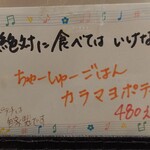 絶対に食べては いけな
ちゃーしゅーごはん
カラマヨポテ
480